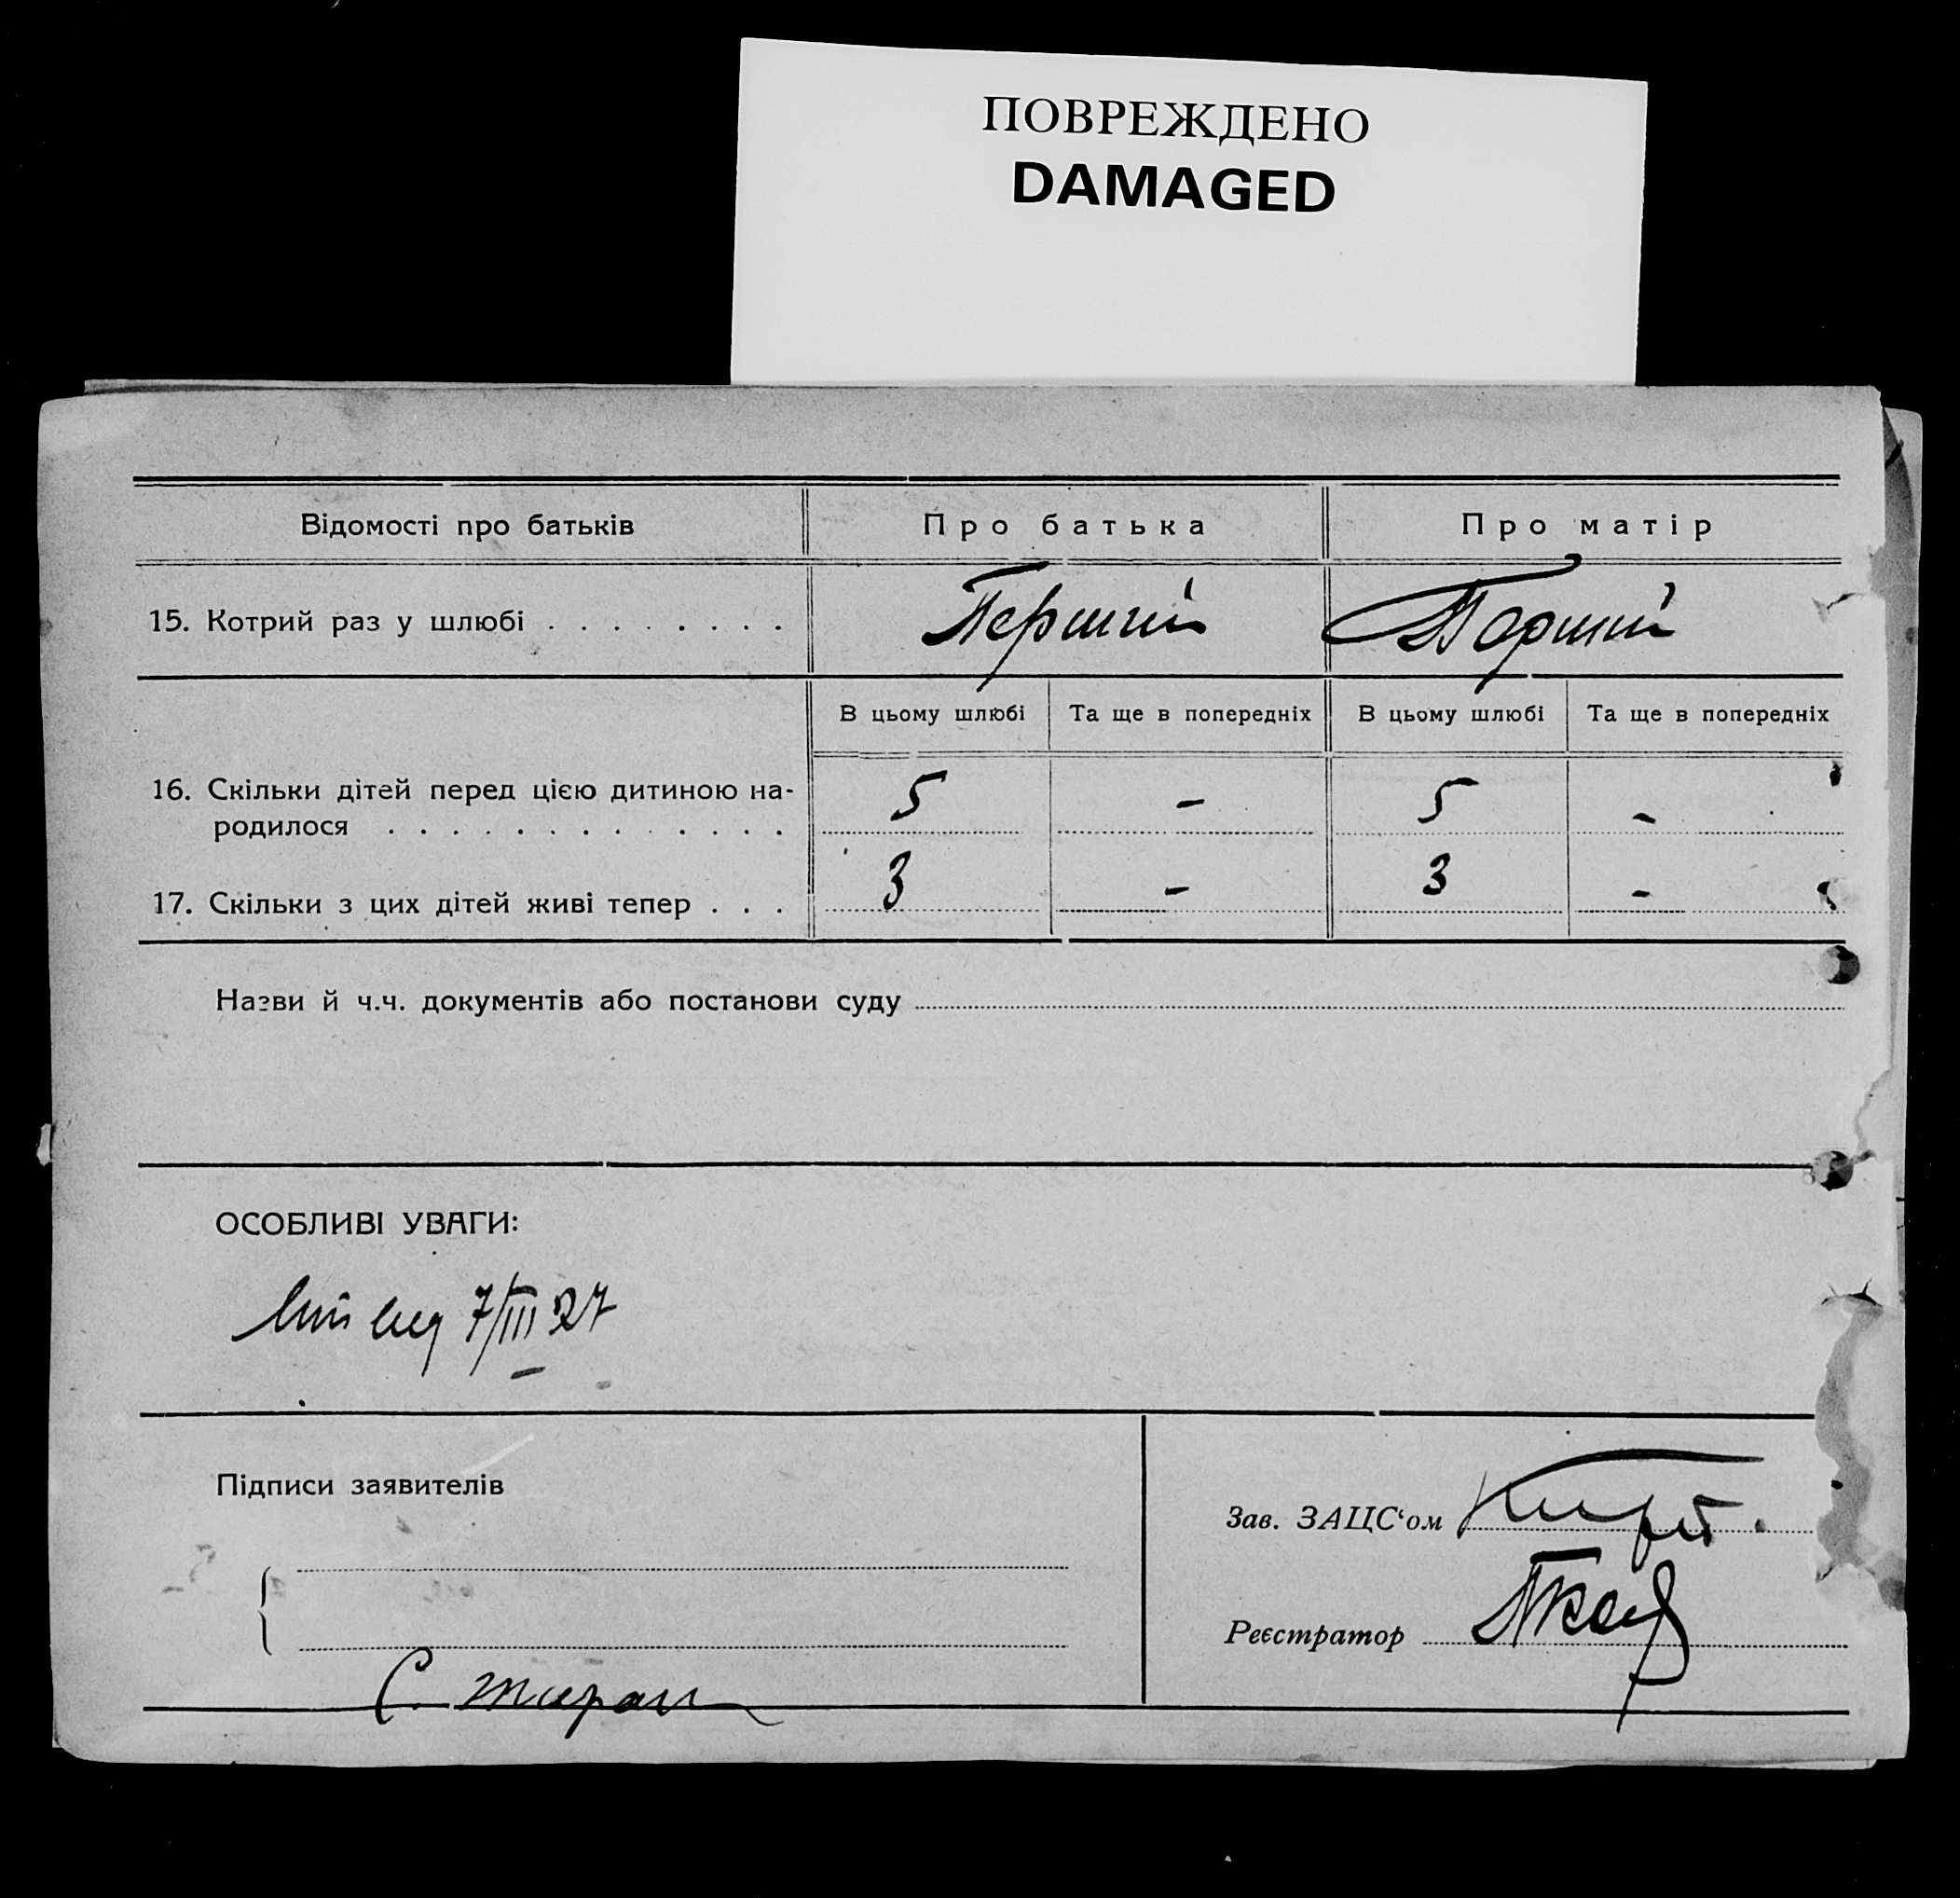 ПОВРЕЖДЕНО
DAMAGED
Відомості про батьків Про батька Про матір
15. Котрий раз у шлюбі . . . . . . . . Перший Перший
В цьому шлюбі Та ще в попередніх В цьому шлюбі Та ще в попередніх
16. Скільки дітей перед цією дитиною на-
родилося . . . . . . . . . . . . . 5 - 5 -
17. Скільки з цих дітей живі тепер . . . 3 - 3 -
Назви й ч.ч. документів або постанови суду
ОСОБЛИВІ УВАГИ:
7/III 27
Підписи заявителів
Зав. ЗАЦС‘ом
Реєстратор
С.